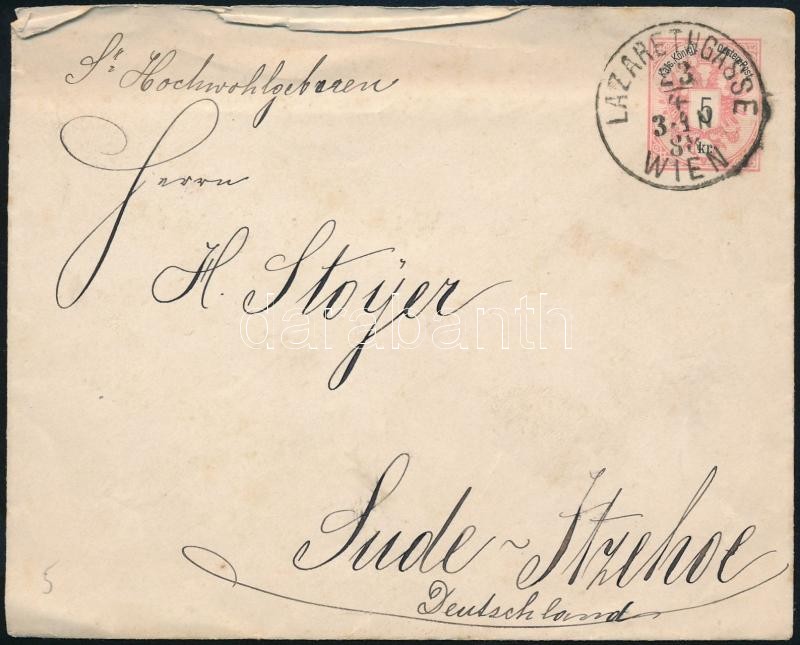 Sr Hochwohlgeboren
Herrn
H. Stoÿer
Sude ~ Itzehoe
Deutschland
LAZARETHGASSE
23
4
3-4N
WIEN
Kais. Königl. Österr. Post
5
kr.
5
darabanth